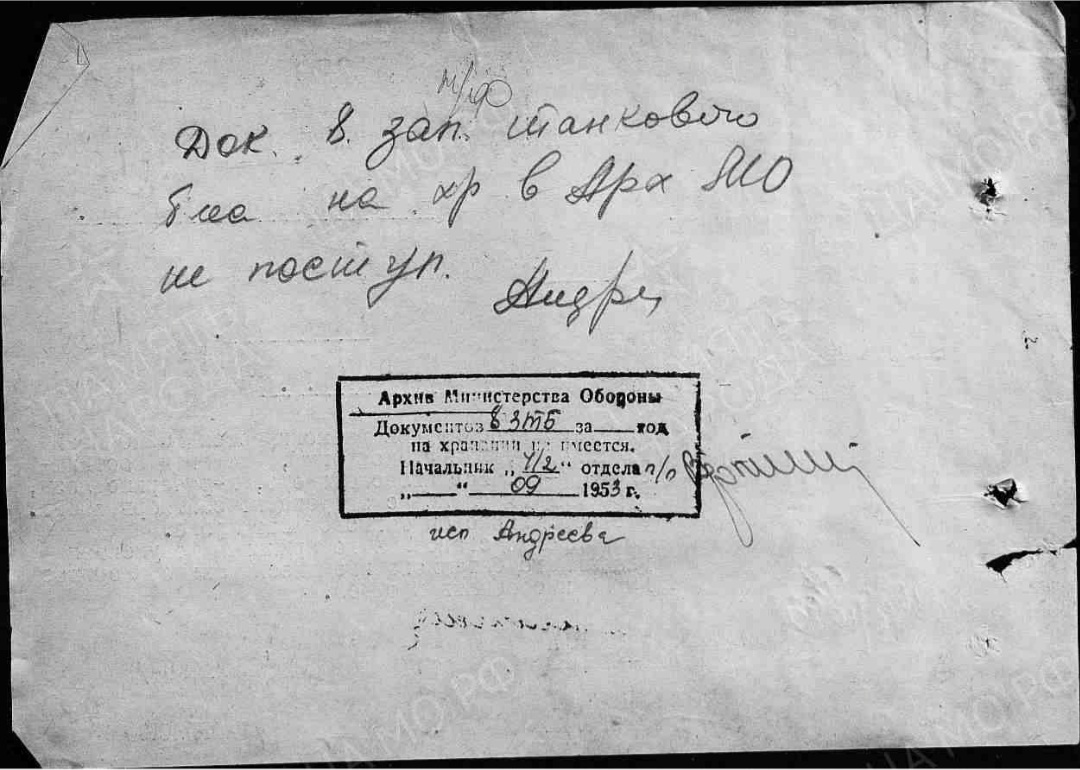 Док. 8. зап. танкового
б-на на хр в Арх МО
не поступ.
Андре
Архив Министерства Обороны
Документов 8 ЗТБ за ____ год
на хранении не имеется.
Начальник „ 1/2 “ отдела п/п
„____“ 09 1953 г.
исп Андреева